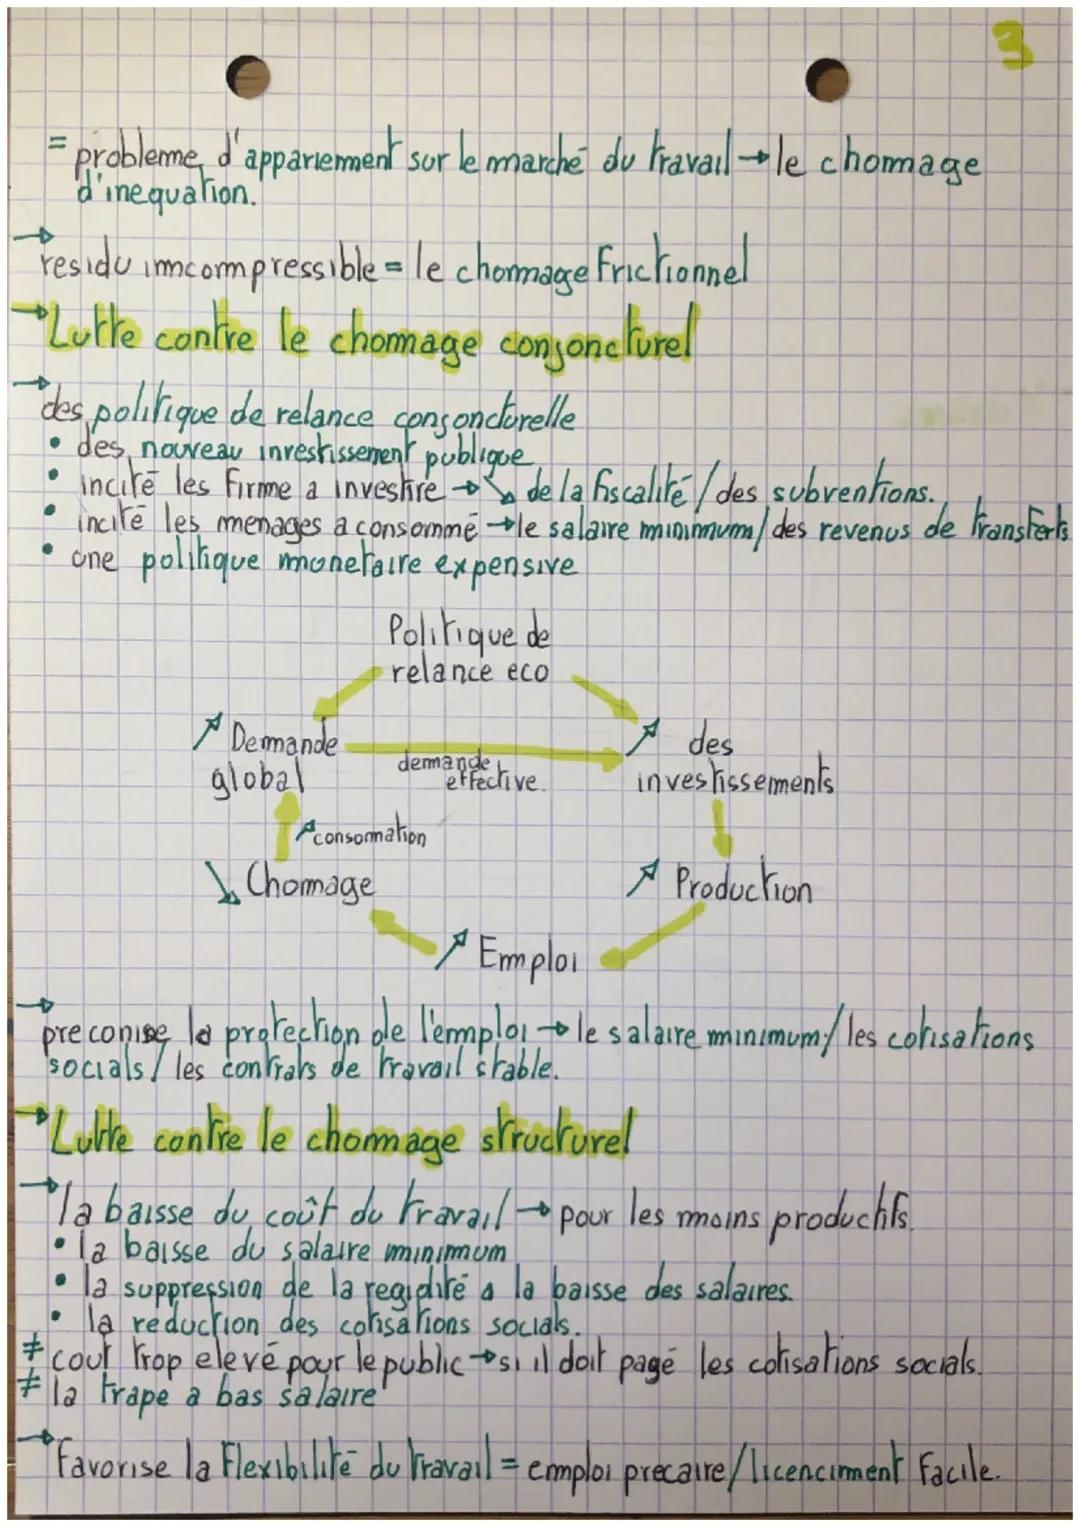 3
= probleme d'appariemment sur le marché du travail → le chomage
d'inequation.
→ residu imcompressible = le chomage Frictionnel
→ Lutte contre le chomage conjoncturel
→ des politique de relance conjoncturelle
• des nouveau investissement publique
• incité les Firme a investire → ↘ de la fiscalité / des subventions.
• incité les menages a consommé → le salaire minimum / des revenus de transferts
• une politique monetaire expensive
Politique de
relance eco
↗ Demande
global
demande
effective.
↗ des
investissements
↗ consommation
↘ Chomage
↗ Production
↗ Emploi
→ preconise la protection de l'emploi → le salaire minimum / les cotisations
socials / les contrats de travail stable.
→ Lutte contre le chomage structurel
→ la baisse du coût du travail → pour les moins productifs.
• la baisse du salaire minimum
• la suppression de la regidité a la baisse des salaires.
• la reduction des cotisations socials.
≠ cout trop elevé pour le public → si il doit pagé les cotisations socials.
≠ la trape a bas salaire
→ Favorise la Flexibilité du travail = emploi precaire / licenciment Facile.